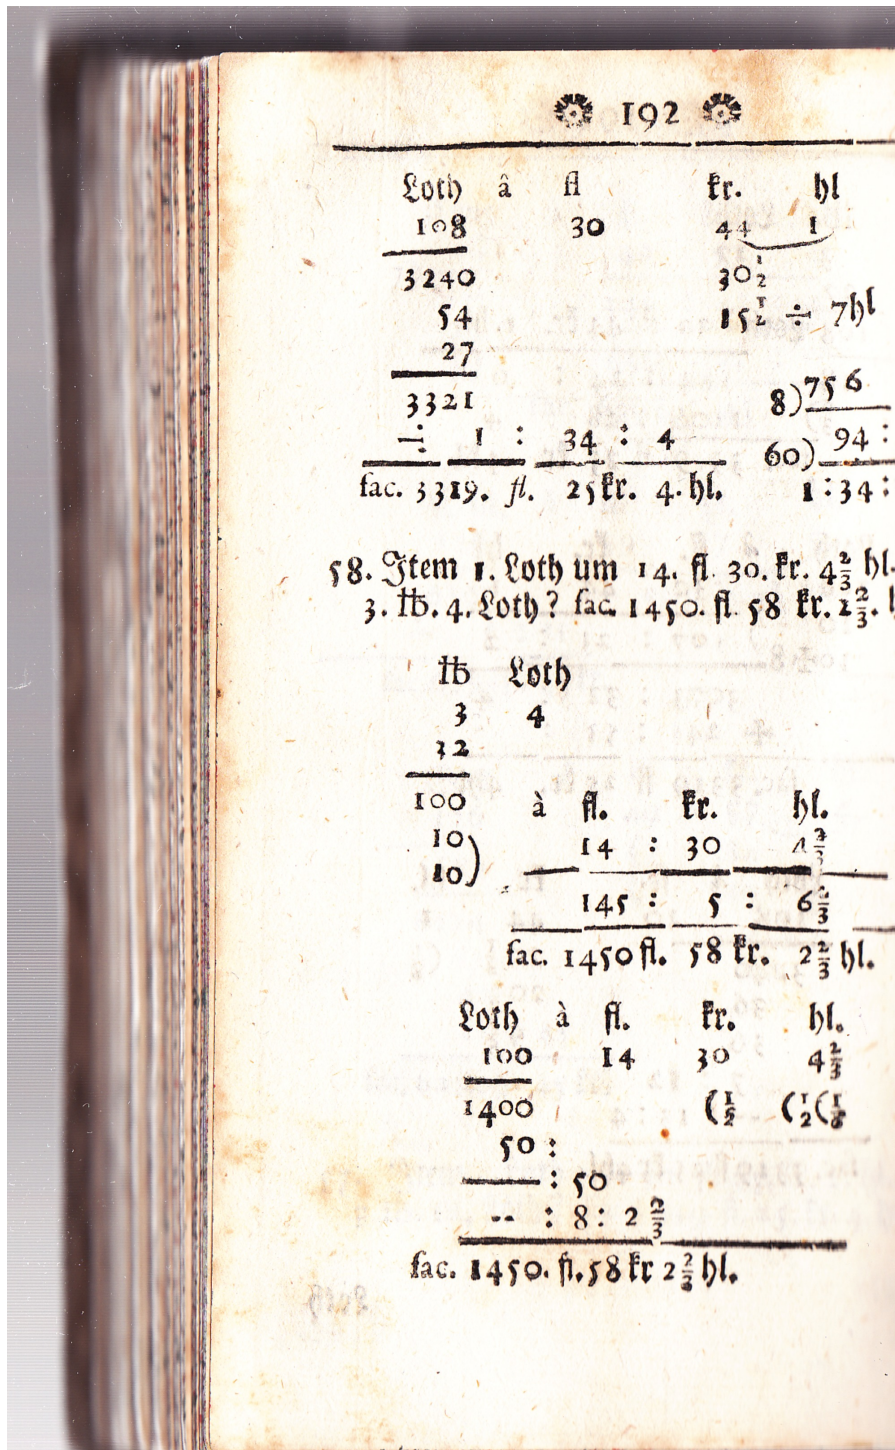 192
Loth â fl kr. hl
108 30 44 1
3240 30 1/2
54 15 1/2 ÷ 7hl
27
3321 8)756
÷ 1 : 34 : 4 60) 94 :
fac. 3319. fl. 25kr. 4. hl. 1 : 34 :
58. Item 1. Loth um 14. fl. 30. kr. 4 2/3 hl.
3. ℔. 4. Loth? fac. 1450. fl. 58 kr. 2 2/3.
℔ Loth
3 4
32
100 à fl. kr. hl.
10) 14 : 30 4 2/3
10)
145 : 5 : 6 2/3
fac. 1450 fl. 58 kr. 2 2/3 hl.
Loth à fl. kr. hl.
100 14 30 4 2/3
1400 (1/2 (1/2 (1/6
50 :
: 50
-- : 8 : 2 2/3
fac. 1450. fl. 58 kr 2 2/3 hl.